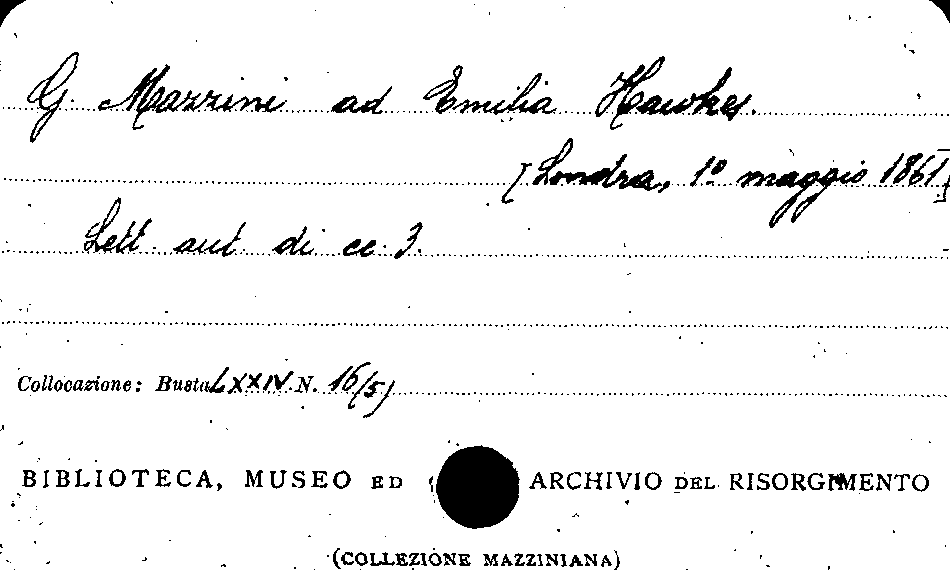 G. Mazzini ad Emilia Hawkes.
[Londra, 1º maggio 1861]
Lett. aut. di cc. 3.
Collocazione: Busta LXXIV N. 16(5)
BIBLIOTECA, MUSEO ED ARCHIVIO DEL RISORGIMENTO
(COLLEZIONE MAZZINIANA)